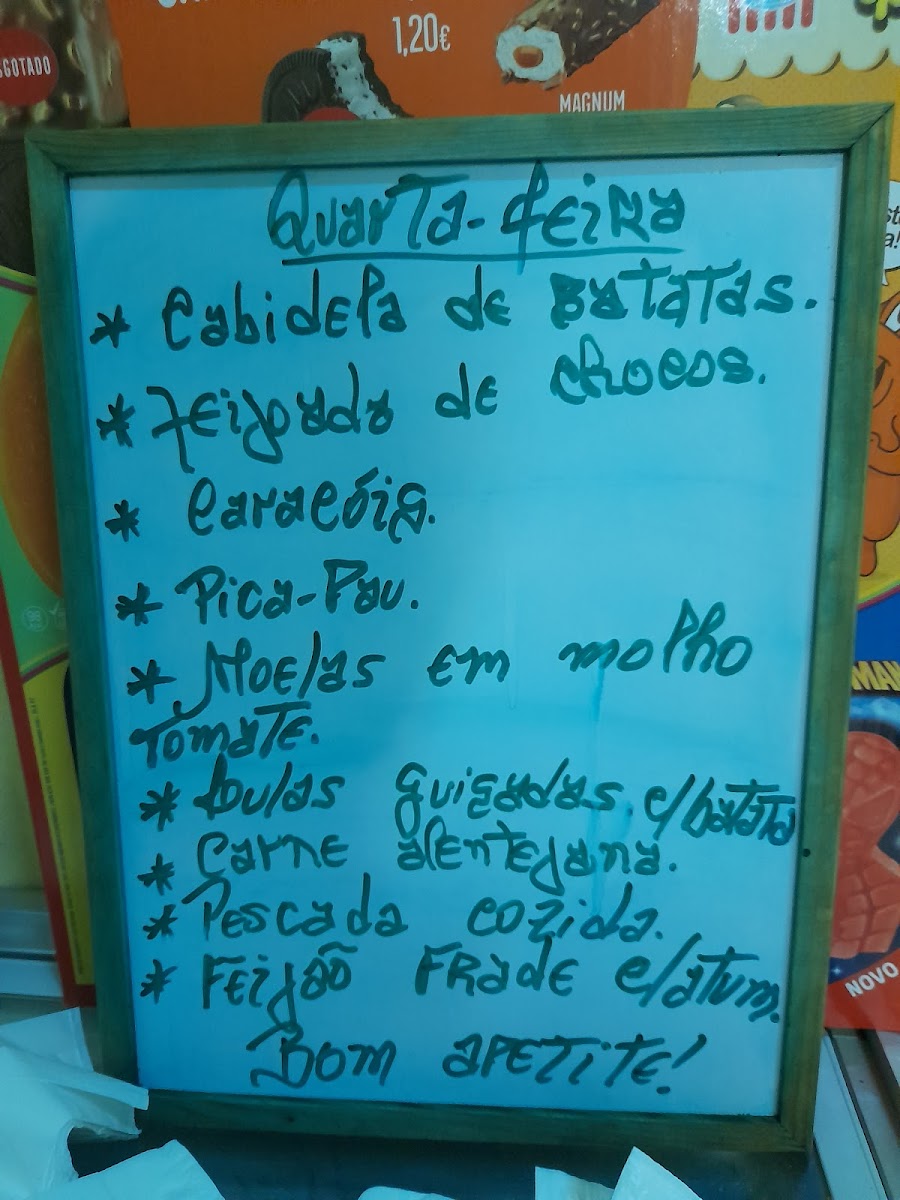 SGOTADO
1,20€
MAGNUM
Quarta-feira
* Cabidela de Batatas.
* Feijoada de chocos.
* Caracóis.
* Pica-Pau.
* Moelas em molho
Tomate.
* Lulas guisadas c/batata
* Carne alentejana.
* Pescada cozida.
* Feijão Frade c/atum.
Bom apetite!
MAX
NOVO